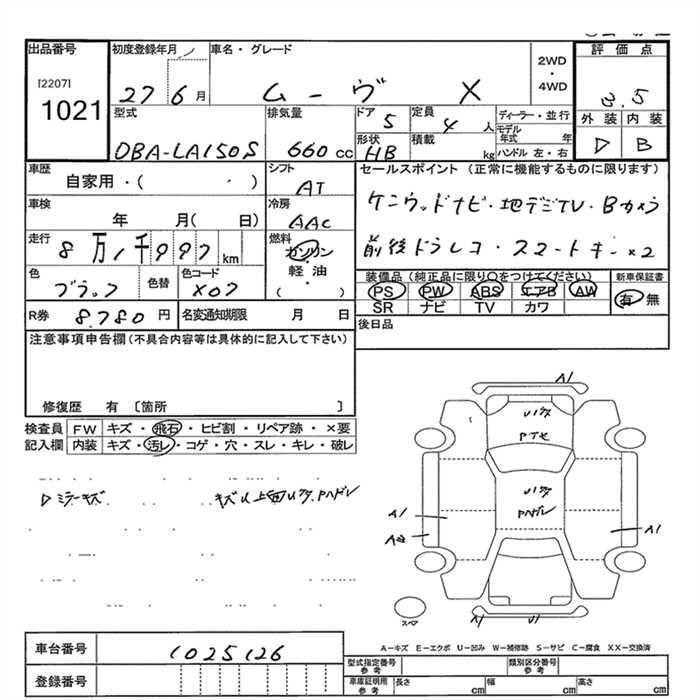 出品番号 初度登録年月 車名・グレード 評価点
[2207] 1021
27 6月 ムーヴ X 2WD・4WD 3.5
外装 内装
D B
型式 排気量 ドア 定員 ディーラー・並行
5 4人 モデル年式 年
DBA-LA150S 660cc 形状 HB 積載 kg ハンドル 左・右
車歴 シフト セールスポイント (正常に機能するものに限ります)
自家用・( ) AT
ケンウッドナビ・地デジTV・Bカメラ
車検 冷房
年 月( 日) AAC
前後ドラレコ・スマートキー×2
走行 燃料
8万1千997km ガソリン・軽油・( )
色 色替 色コード 装備品(純正品に限り○をつけてください) 新車保証書
ブラック X07 PS PW ABS エアB AW 有・無
SR ナビ TV カワ
R券 8,780円 名変通知期限 月 日 後日品
注意事項申告欄(不具合内容等は具体的に記入して下さい)
修復歴 有 〔箇所 〕
検査員 FW キズ・飛石・ヒビ割・リペア跡・×要
記入欄 内装 キズ・汚レ・コゲ・穴・スレ・キレ・破レ
Dミラーキズ
A1
A1
A2
A1
A1
U1
スペア
車台番号 1025126
A−キズ E−エクボ U−凹み W−補修跡 S−サビ C−腐食 XX−交換済
型式指定番号 参考 類別区分番号 参考
登録番号 車庫証明用 参考 長さ cm 幅 cm 高さ cm